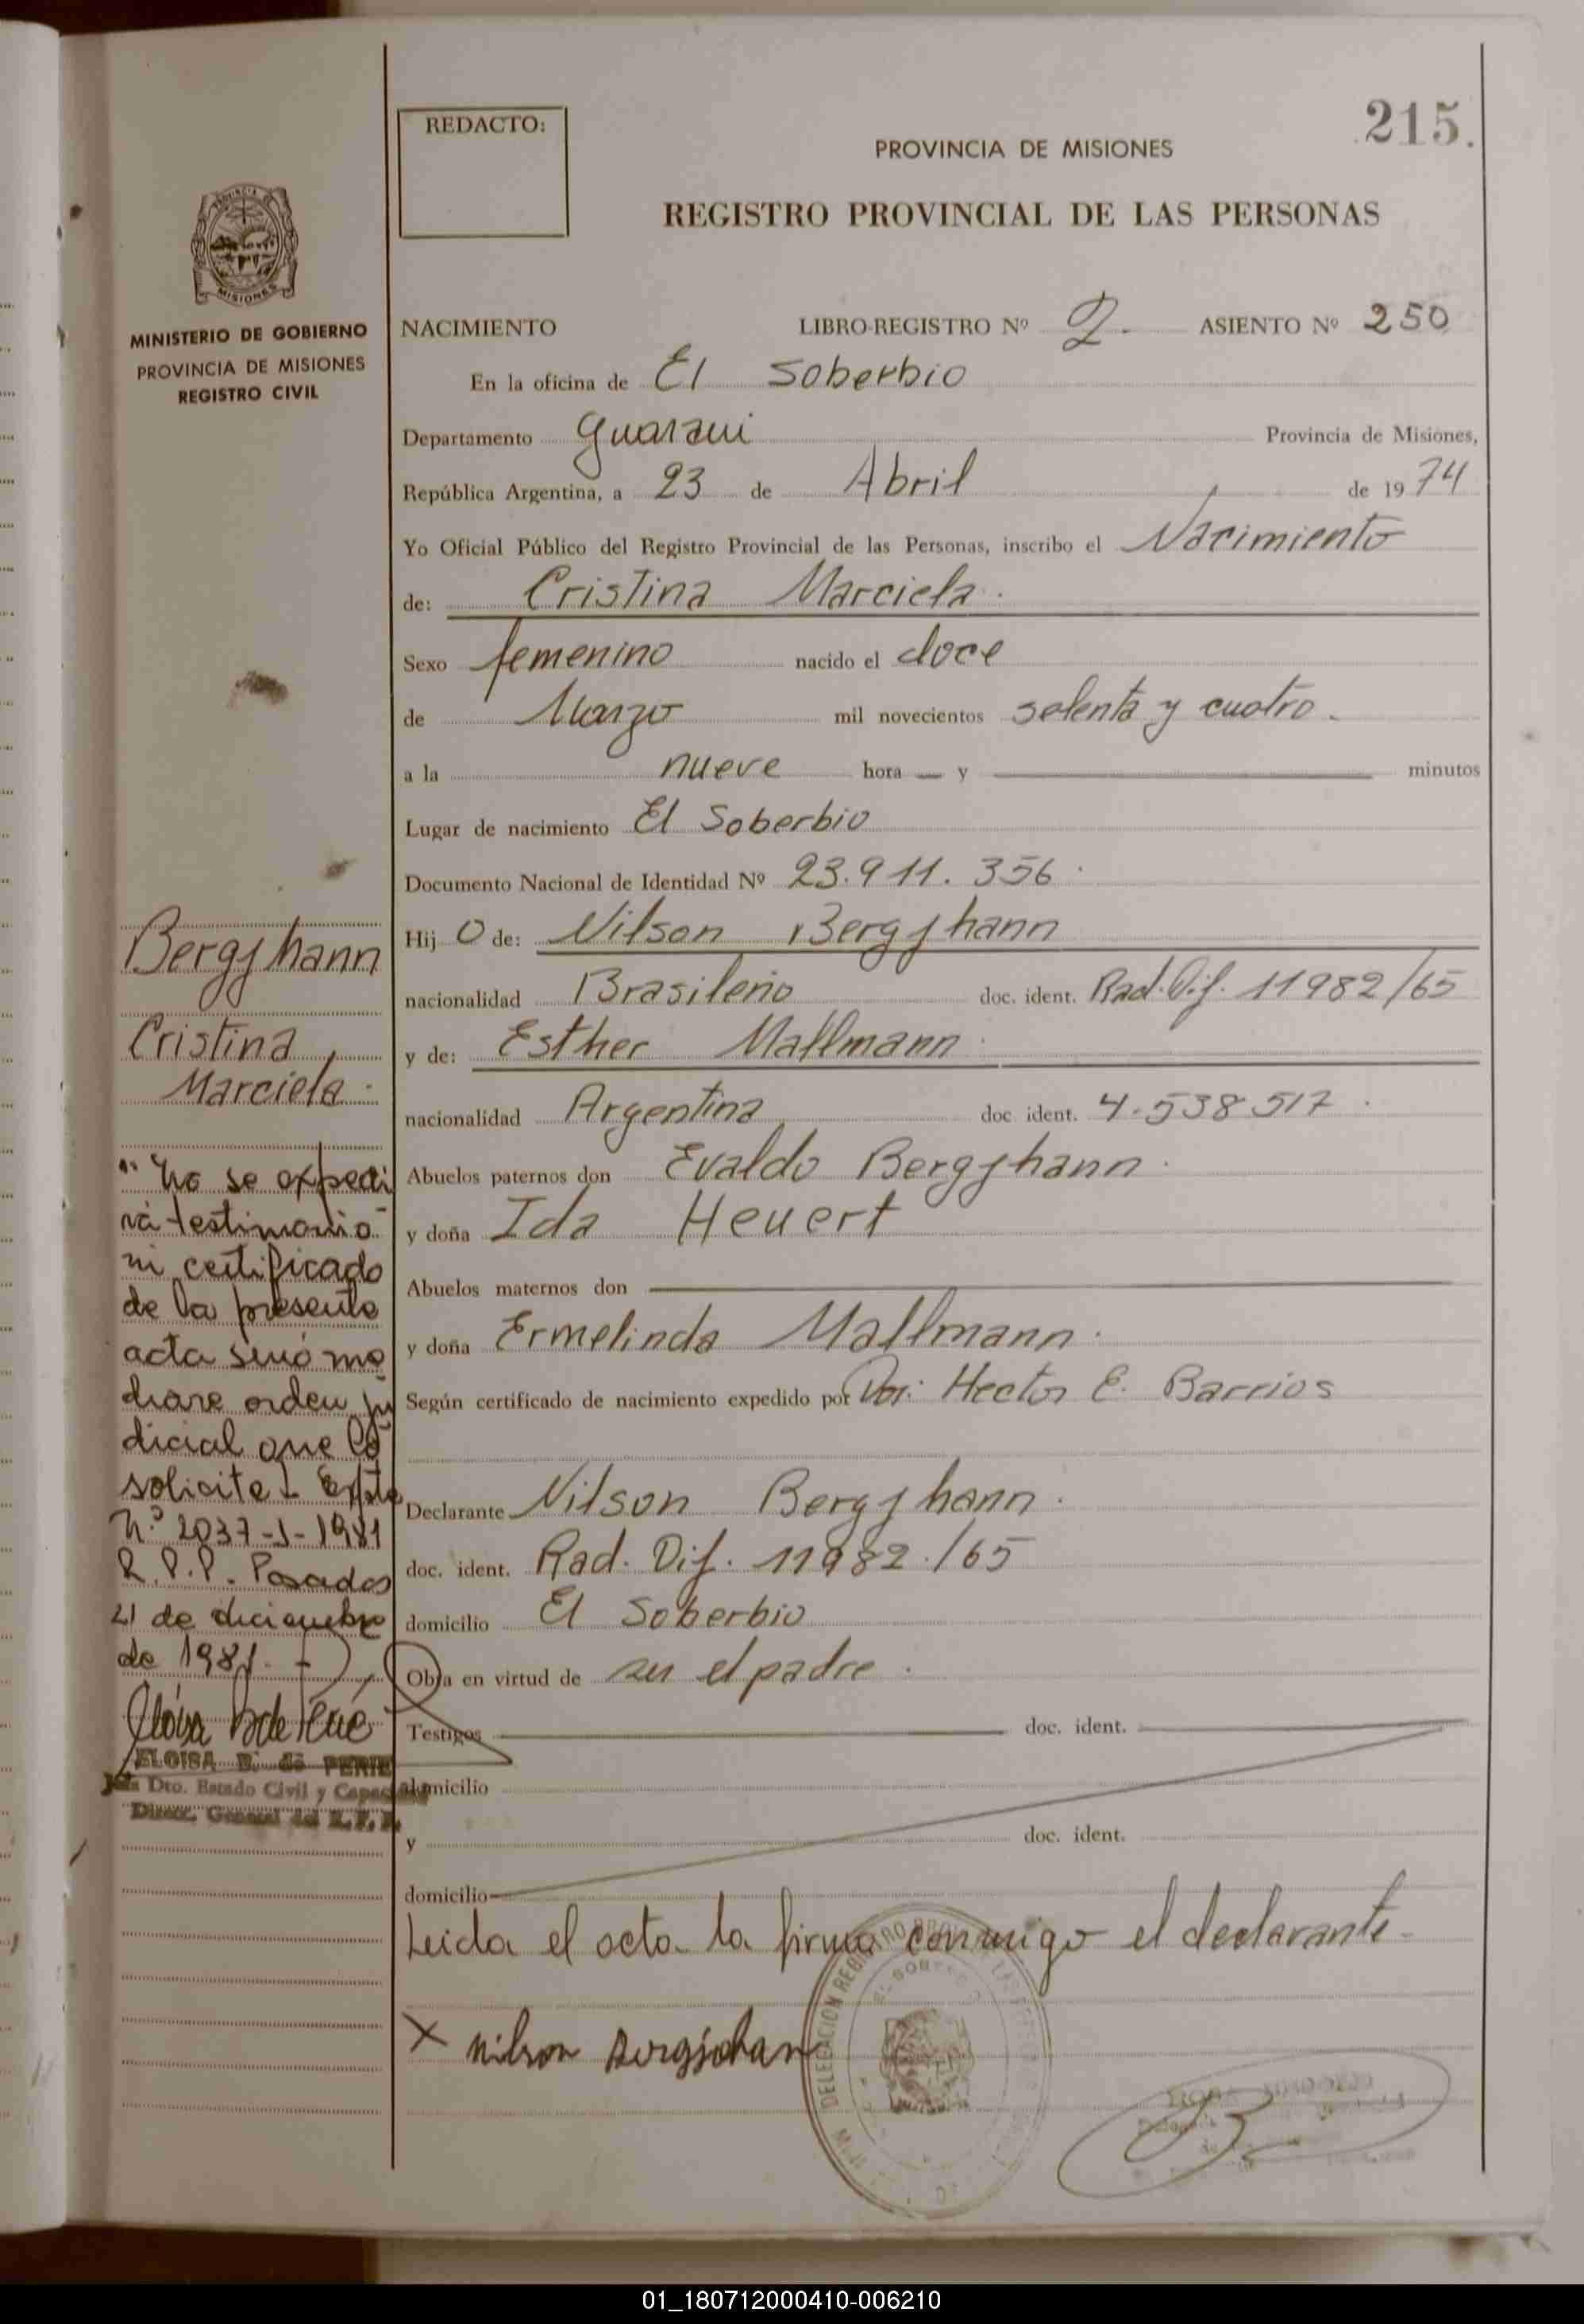 215.
REDACTO:
PROVINCIA DE MISIONES
REGISTRO PROVINCIAL DE LAS PERSONAS
MISIONES
MINISTERIO DE GOBIERNO
PROVINCIA DE MISIONES
REGISTRO CIVIL
NACIMIENTO LIBRO-REGISTRO Nº 2. ASIENTO Nº 250
En la oficina de El Soberbio
Departamento Guarani Provincia de Misiones,
República Argentina, a 23 de Abril de 1974
Yo Oficial Público del Registro Provincial de las Personas, inscribo el Nacimiento
de: Cristina Marciela.
Sexo femenino nacido el doce
de Marzo mil novecientos setenta y cuatro.
a la nueve hora — y — minutos
Lugar de nacimiento El Soberbio
Documento Nacional de Identidad Nº 23.911.356.
Hij O de: Nilson Bergjhann
nacionalidad Brasileño doc. ident. Rad. Dif. 11982/65
y de: Esther Mallmann.
nacionalidad Argentina doc. ident. 4.538.517.
Abuelos paternos don Evaldo Bergjhann.
y doña Ida Heuert
Abuelos maternos don —
y doña Ermelinda Mallmann.
Según certificado de nacimiento expedido por Hector E. Barrios
Declarante Nilson Bergjhann.
doc. ident. Rad. Dif. 11982./65
domicilio El Soberbio
Obra en virtud de ser el padre.
Testigos — doc. ident. —
domicilio
y doc. ident.
domicilio
Leida el acta la firma conmigo el declarante.
X Nilson Bergjohan
DELEGACION REGISTRO
EL SOBERBIO
Bergjhann
Cristina
Marciela.
"No se expedi
rá testimonio
ni certificado
de la presente
acta sinó me
diare orden ju
dicial que lo
solicite. Expte
Nº 2037-J-1981
R.P.P. Posadas
21 de diciembre
de 1981.
ELOISA B. de PERIE
Jefa Dto. Estado Civil y Capacidad
Direcc. General del R.P.P.
01_180712000410-006210